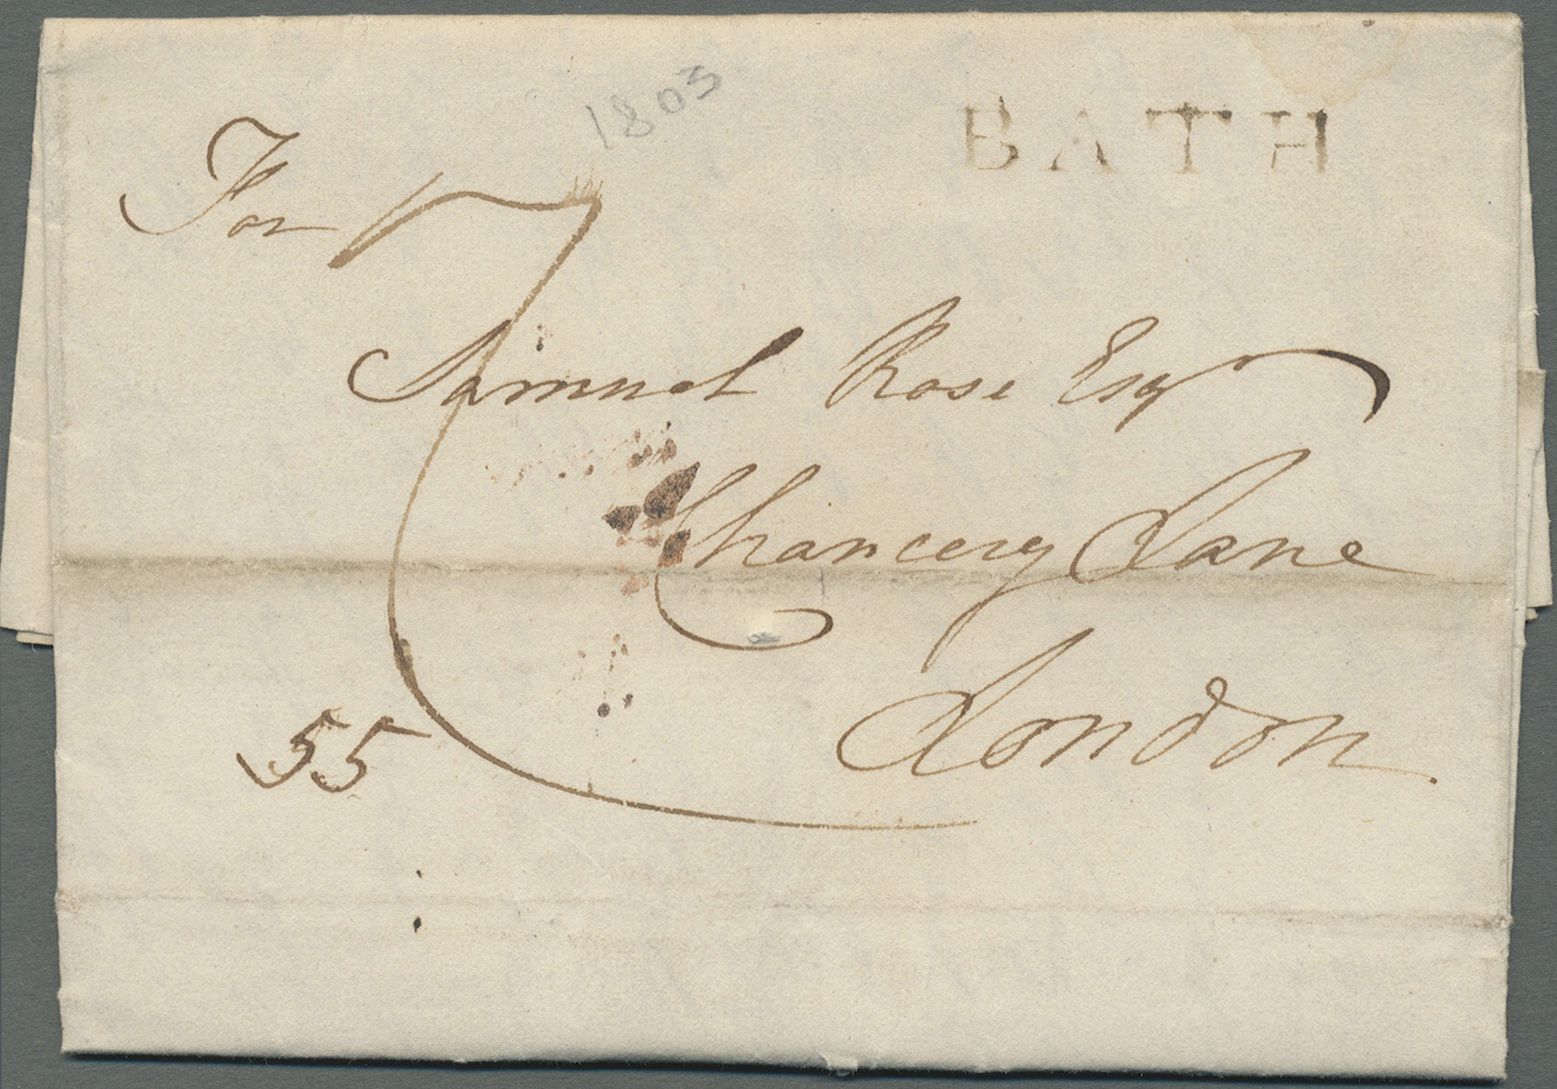 1803
BATH
For
7
Samuel Rose Esqr
Chancery Lane
London
55